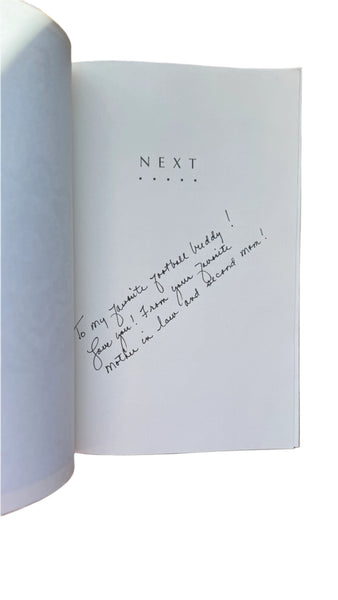 NEXT
To my favorite football buddy!
Love you! From your favorite
Mother in law and second mom!